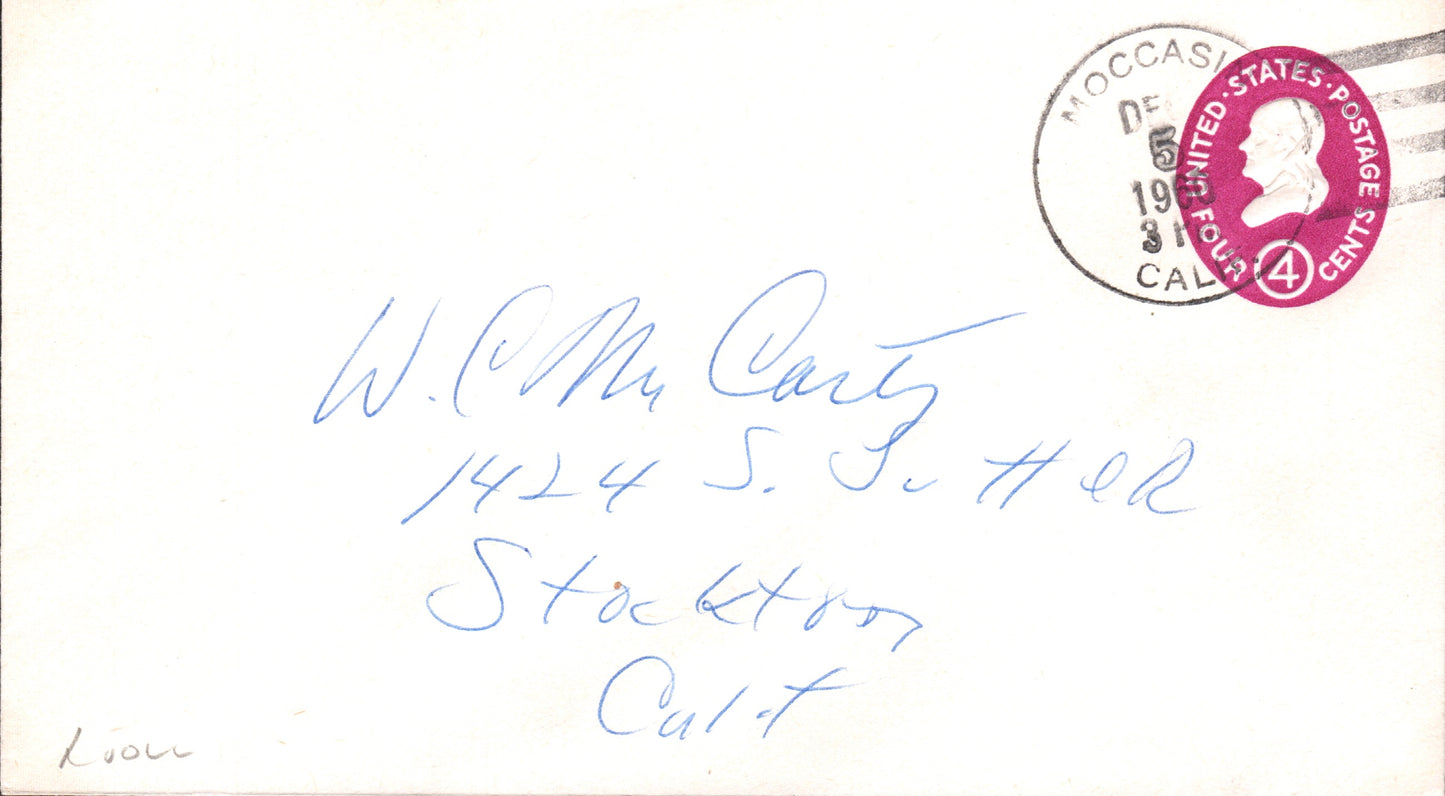 MOCCASIN
DEC
5
1960
3 PM
CALIF.
UNITED · STATES · POSTAGE
FOUR 4 CENTS
W. C. Mc Carty
1424 S. SuttER
Stockton
Calif